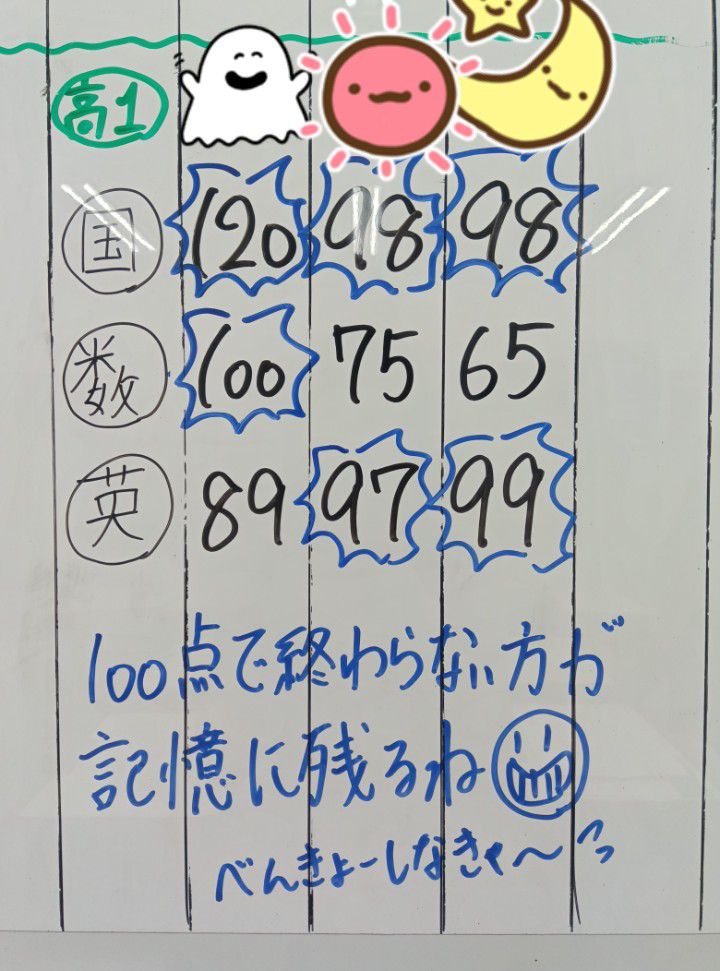 高1
国 120 98 98
数 100 75 65
英 89 97 99
100点で終わらない方が
記憶に残るね
べんきょーしなきゃ〜